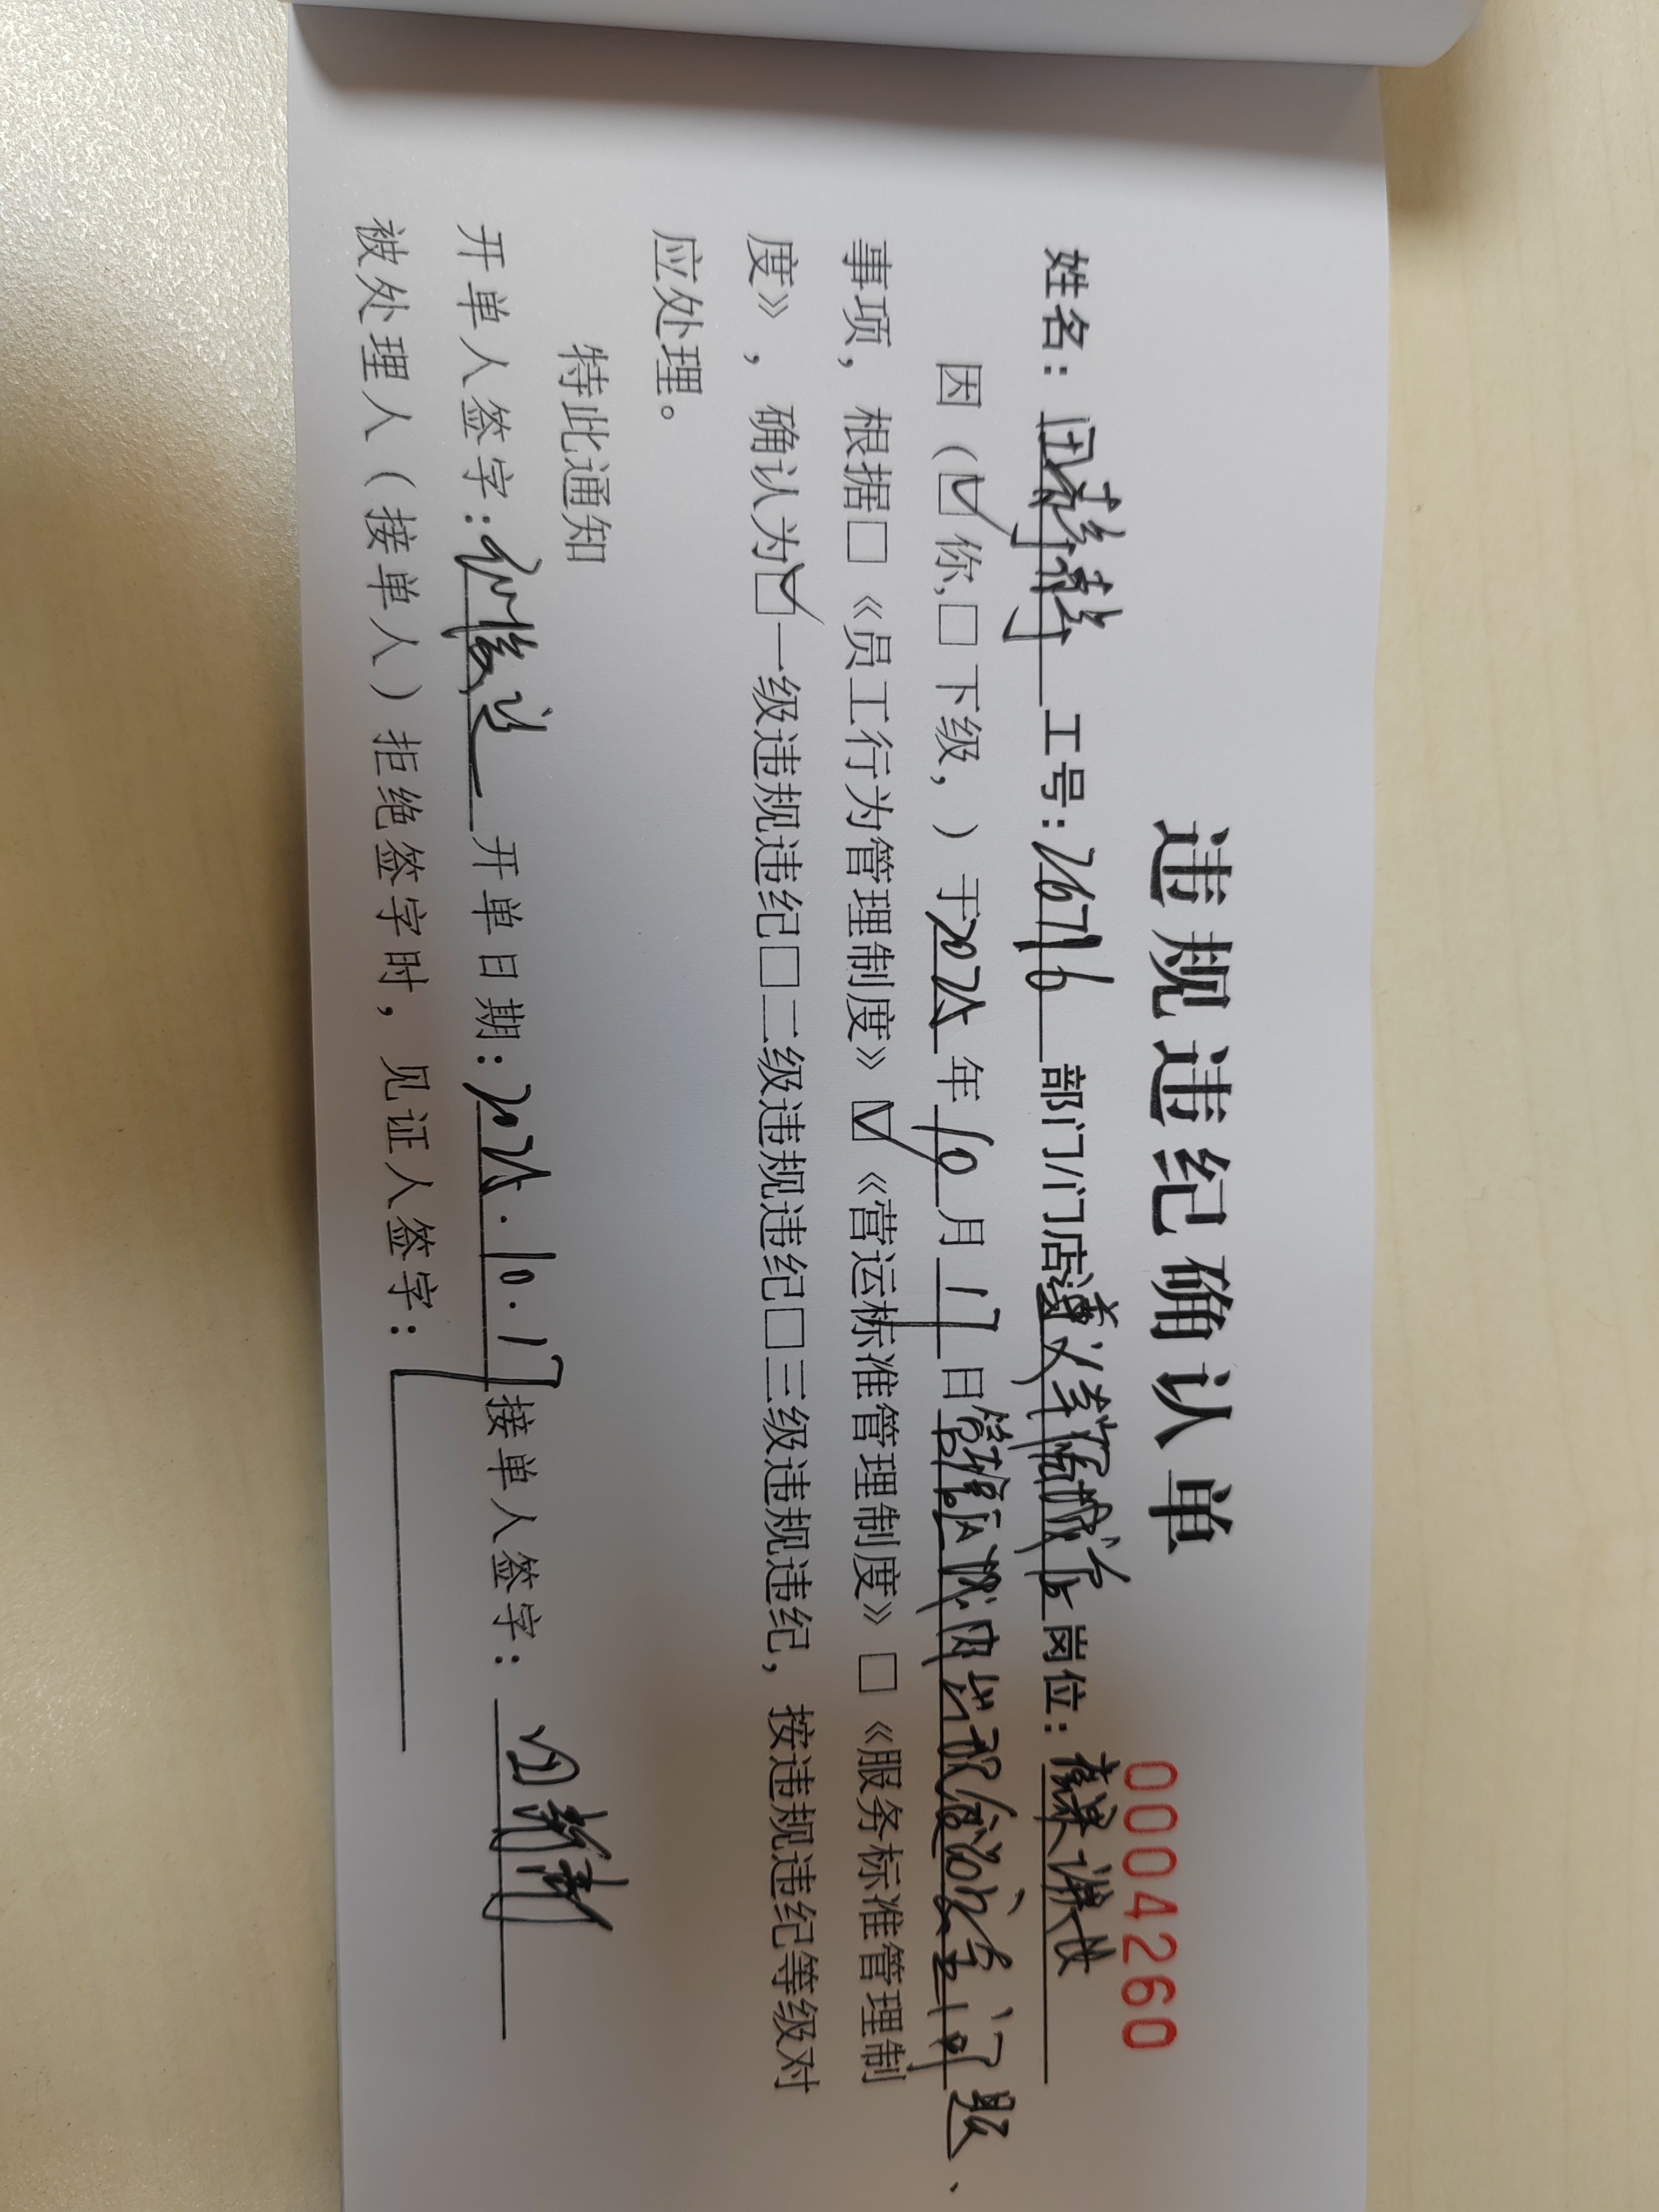 违规违纪确认单
0004260
姓名：田 工号：26716 部门/门店 遵义 店 岗位：
因（☑你，□下级，）于2025年10月17日管 区域内出现食 问题、
事项，根据□《员工行为管理制度》☑《营运标准管理制度》□《服务标准管理制
度》，确认为☑一级违规违纪□二级违规违纪□三级违规违纪，按违规违纪等级对
应处理。
特此通知
开单人签字： 开单日期：2025.10.17 接单人签字：田
被处理人（接单人）拒绝签字时，见证人签字：